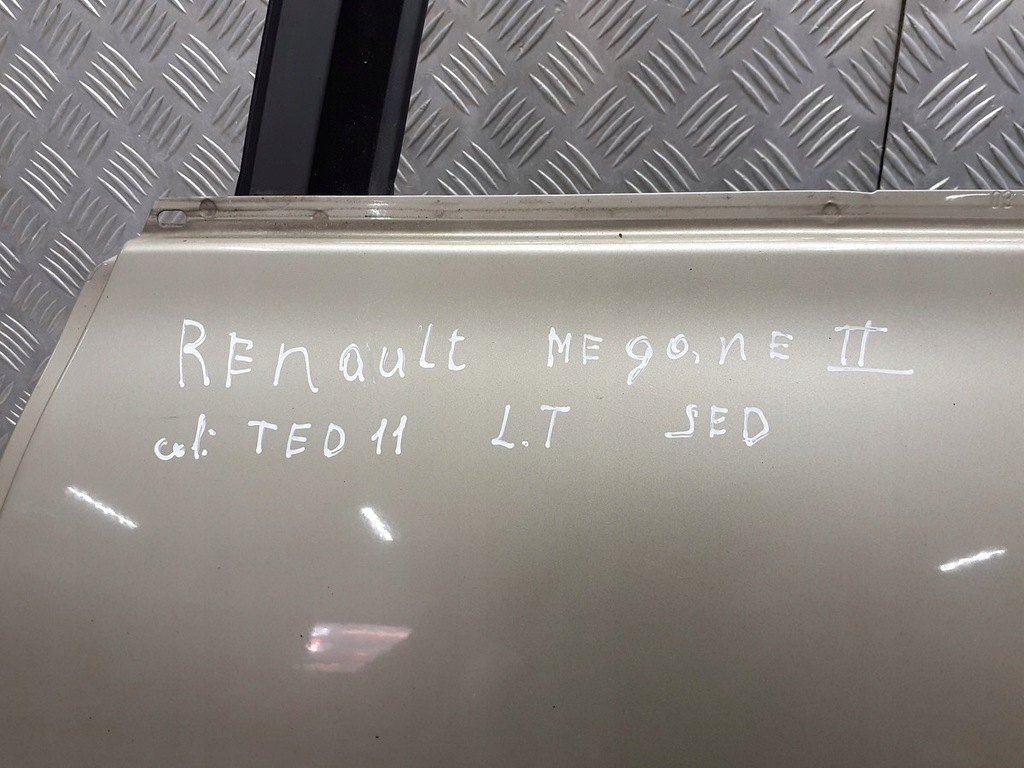 Renault MEgane II
col: TED 11 L.T SED